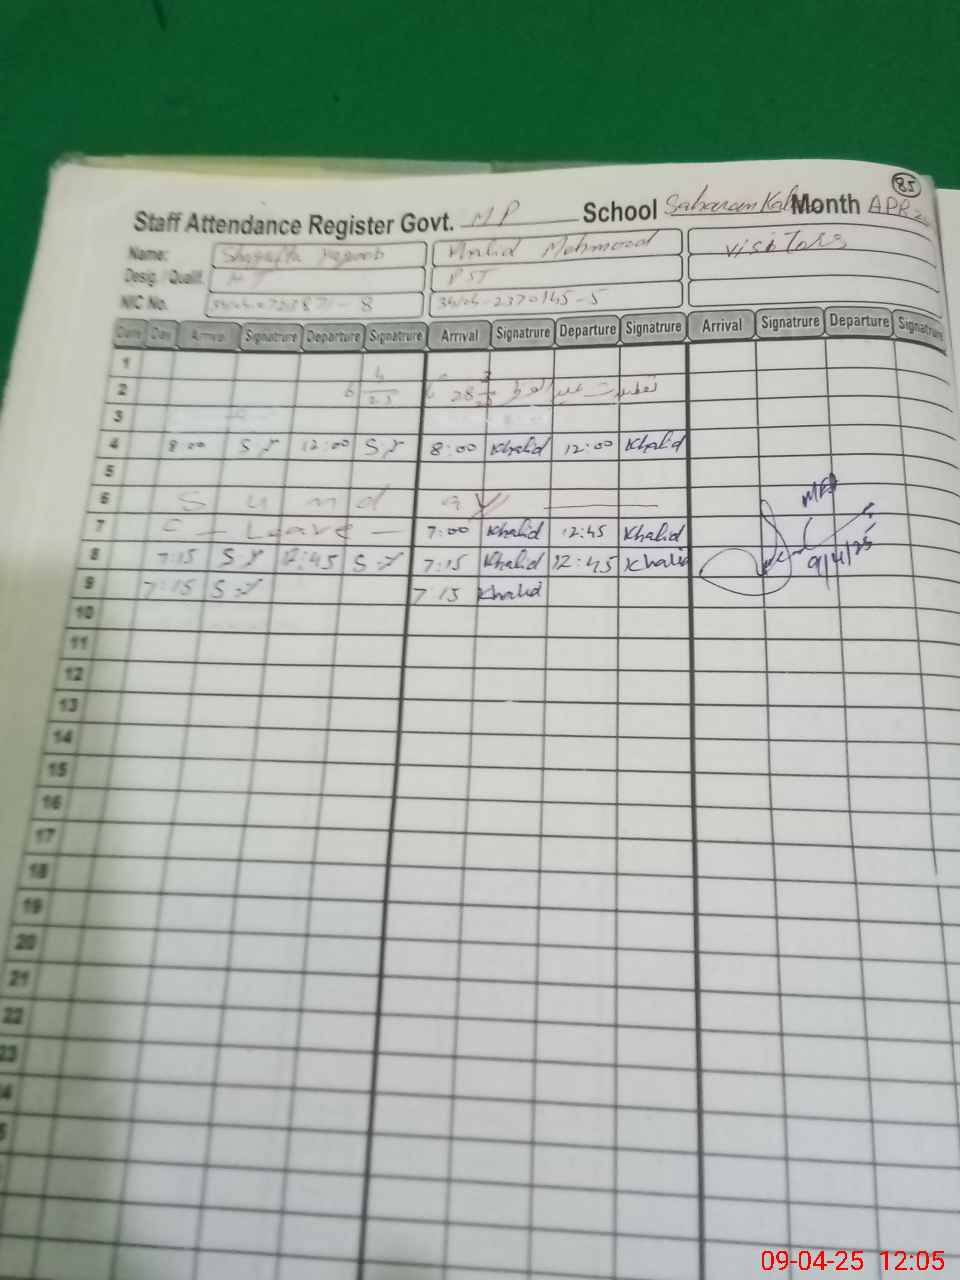 85
Staff Attendance Register Govt. MP School Saharan Month APR
Name: Khalid Mehmood visitors
Desig. / Qualif. PST
NIC No.
Date Day Arrival Signatrure Departure Signatrure Arrival Signatrure Departure Signatrure Arrival Signatrure Departure Signatrure
1
2
3
4 8:00 S.Y 12:00 S.Y 8:00 Khalid 12:00 Khalid
5
6 Sunday
7 C - Leave - 7:00 Khalid 12:45 Khalid
8 7:15 S.Y 12:45 S.Y 7:15 Khalid 12:45 Khalid 9/4/25
9 7:15 S.Y 7:15 Khalid
10
11
12
13
14
15
16
17
18
19
20
21
22
23
4
5
09-04-25 12:05